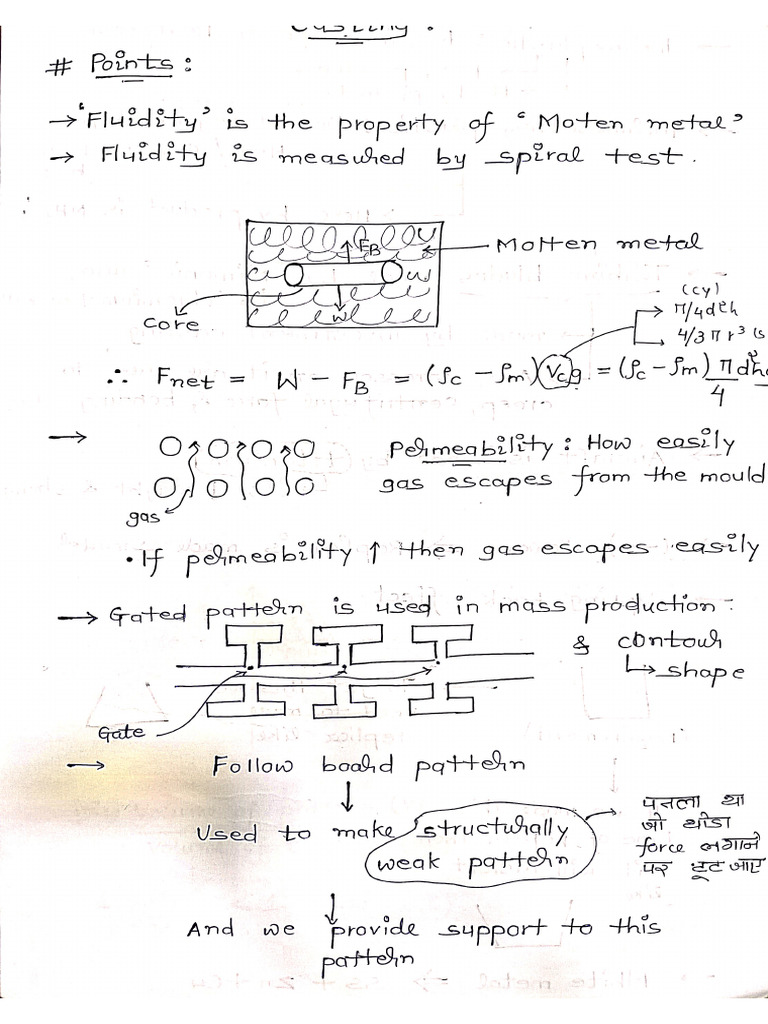 Casting :
# Points :
→ 'Fluidity' is the property of 'Moten metal'
→ Fluidity is measured by spiral test.
F_B
Molten metal
core
W
(cy)
π/4d²h
4/3πr³ (s
∴ F_net = W - F_B = (ρ_c - ρ_m)(V_c)g = (ρ_c - ρ_m) πd²h
4
→ Permeability : How easily
gas escapes from the mould
gas
• If permeability ↑ then gas escapes easily
→ Gated pattern is used in mass production
& contour
↳ shape
Gate
→ Follow board pattern
↓
Used to make structurally
weak pattern
→ पतला था
जो थोडा
force लगाने
पर टूट जाए
↓
And we provide support to this
pattern